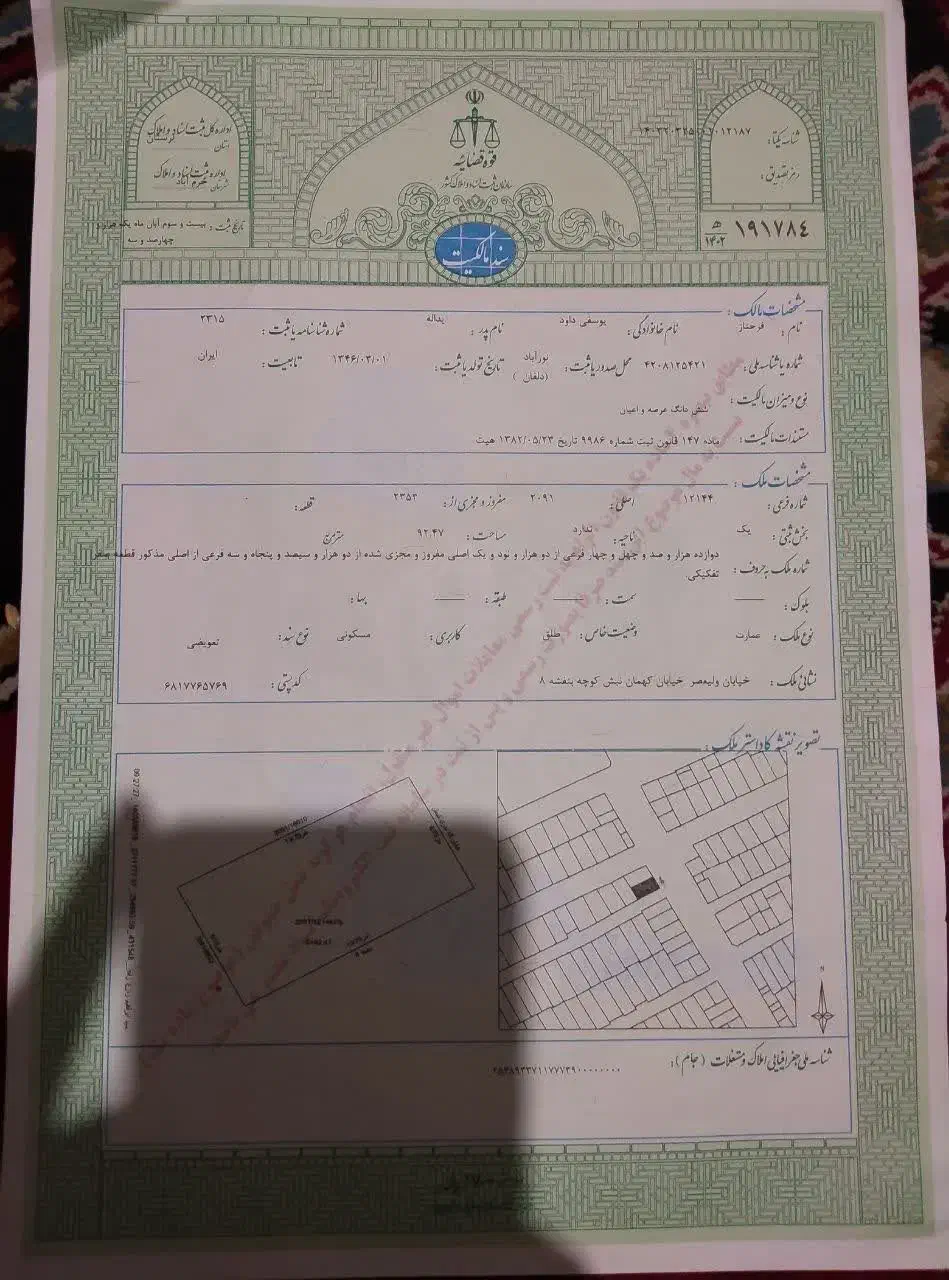 شناسه یکتا:
رمز تصدیق:
۱۹۱۷۸۴
۱۴۰۲
قوه قضائیه
سازمان ثبت اسناد و املاک کشور
سند مالکیت
اداره کل ثبت اسناد و املاک
استان لرستان
اداره ثبت اسناد و املاک
شهرستان خرم آباد
تاریخ ثبت: بیست و سوم آبان ماه یکهزار و
چهارصد و سه
مشخصات مالک:
نام: فرحناز نام خانوادگی: یوسفی داود نام پدر: یداله شماره شناسنامه یا ثبت: ۲۳۱۵
شماره یا شناسه ملی: ۴۲۰۸۱۲۵۴۲۱ محل صدور یا ثبت: نورآباد (دلفان) تاریخ تولد یا ثبت: ۱۳۴۶/۰۳/۰۱ تابعیت: ایران
نوع و میزان مالکیت: شش دانگ عرصه و اعیان
مستندات مالکیت: ماده ۱۴۷ قانون ثبت شماره ۹۹۸۶ تاریخ ۱۳۸۲/۰۵/۲۳ هیت
مشخصات ملک:
شماره فرعی: ۱۲۱۴۴ اصلی: ۲۰۹۱ مفروز و مجزی از: ۲۳۵۳ قطعه: ۰
بخش ثبتی: یک ناحیه: ندارد مساحت: ۹۲.۴۷ مترمربع
شماره ملک به حروف: دوازده هزار و صد و چهل و چهار فرعی از دو هزار و نود و یک اصلی مفروز و مجزی شده از دو هزار و سیصد و پنجاه و سه فرعی از اصلی مذکور قطعه صفر
تفکیکی.
بلوک: —— سمت: —— طبقه: —— بها:
نوع ملک: عمارت وضعیت خاص: طلق کاربری: مسکونی نوع سند: تعویضی
نشانی ملک: خیابان ولیعصر خیابان کهمان نبش کوچه بنفشه ۸ کدپستی: ۶۸۱۷۷۶۵۷۶۹
تصویر نقشه کاداستر ملک:
N
شناسه ملی جغرافیایی املاک و مستغلات (جام):